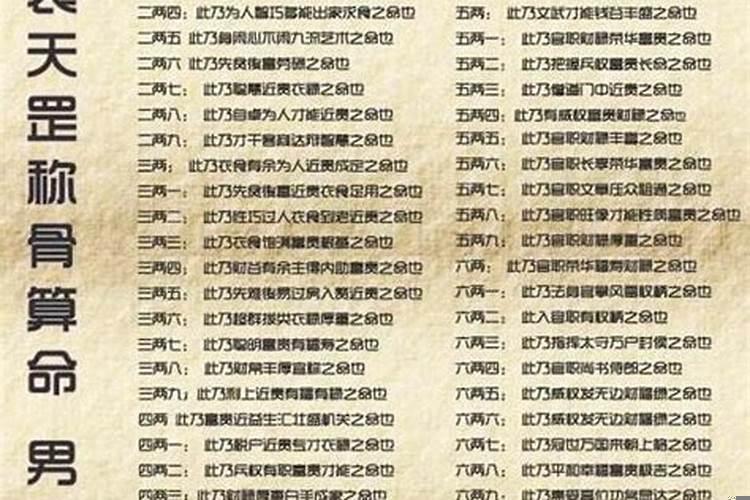 天罡称骨算命 男
二两四：此乃为人智巧多能出家求食之命也
二两五 此乃身闲心不闲九流艺术之命也
二两六 此乃先贫後富劳碌之命也
二两七： 此乃聪慧近贵衣禄之命也
二两八： 此乃自卓为人才能近贵之命也
二两九： 此乃才干客商达辩智慧之命也
三两： 此乃衣食有余为人近贵成定之命也
三两一： 此乃先贫後富近贵衣食足用之命也
三两二： 此乃性巧过人衣食到老近贵之命也
三两三： 此乃衣食饱满富贵根基之命也
三两四： 此乃财谷有余主得内助富贵之命也
三两五： 此乃先难後易过房入赘近贵之命也
三两六： 此乃超群拔类衣禄厚重之命也
三两七： 此乃聪明富贵有福寿之命也
三两八： 此乃财帛丰厚宜称之命也
三两九： 此乃利上近贵有福有禄之命也
四两 此乃富贵近益生汇壮盛机关之命也
四两一： 此乃税户近贵专才衣禄之命也
四两二： 此乃兵权有职富贵才能之命也
四两三： 此乃财禄厚重白手成家之命也
五两： 此乃文武才能钱谷丰盛之命也
五两一： 此乃官职财禄荣华富贵之命也
五两二： 此乃把握兵权富贵长命之命也
五两三： 此乃僧道门中近贵之命也
五两四：此乃有威权富贵财禄之命也
五两五： 此乃官职财禄丰富之命也
五两六： 此乃官职长享荣华富贵之命也
五两七： 此乃官职文章庄众精通之命也
五两八： 此乃官职旺像才能性质富贵之命也
五两九： 此乃官职财禄厚重之命也
六两： 此乃官职荣华福寿财禄之命也
六两一： 此乃法身官掌风宪权柄之命也
六两二： 此入官职有权柄之命也
六两三： 此乃指挥太守万户封侯之命也
六两四： 此乃官职尚书侍郎之命也
六两五： 此乃威权发无边财福绿之命也
六两六： 此乃威权发无边财福绿之命也
六两七： 此乃冠世万国来朝上格之命也
六两八： 此乃平和幸福富贵极吉之命也
六两九：